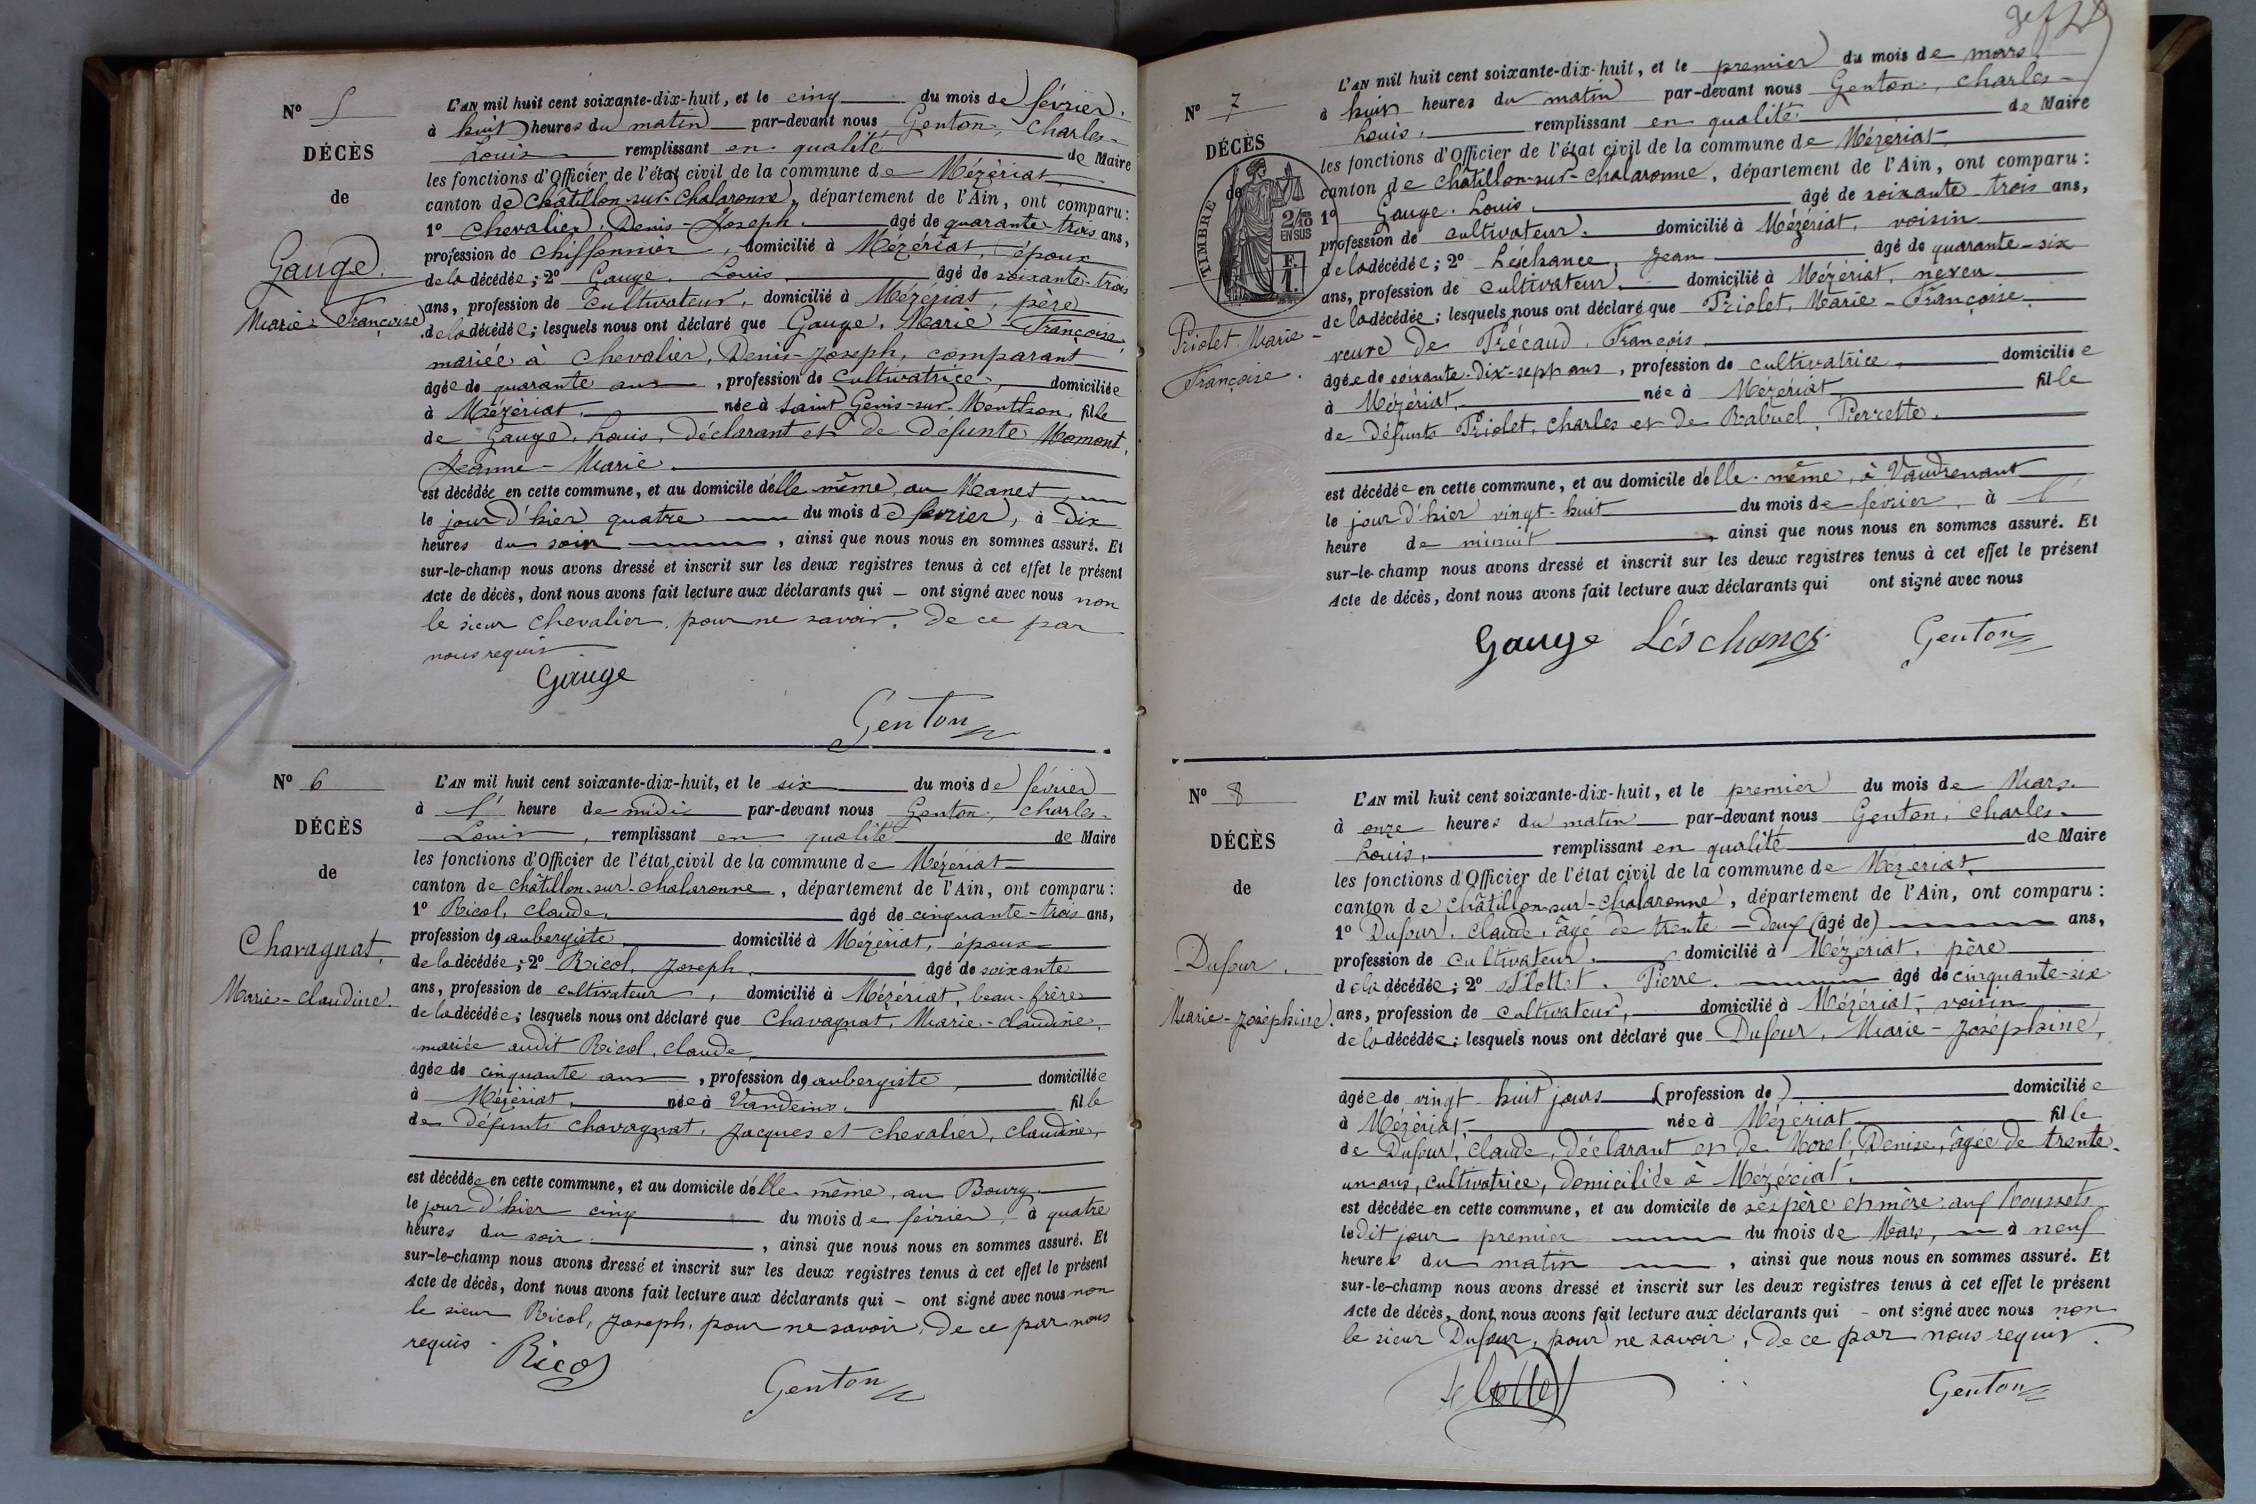 N° 5
DÉCÈS
de
Gauge
Marie-Françoise
L'AN mil huit cent soixante-dix-huit, et le cinq du mois de février
à huit heures du matin par-devant nous Genton, Charles-
Louis remplissant en qualité de Maire
les fonctions d'Officier de l'état civil de la commune de Mézériat
canton de Châtillon-sur-Chalaronne, département de l'Ain, ont comparu :
1° Chevalier, Denis-Joseph, âgé de quarante trois ans,
profession de chiffonnier, domicilié à Mézériat, époux
de la décédée ; 2° Gauge, Louis, âgé de soixante-trois
ans, profession de cultivateur, domicilié à Mézériat, père
de la décédée ; lesquels nous ont déclaré que Gauge, Marie-Françoise,
mariée à Chevalier, Denis-Joseph, comparant
âgée de quarante ans, profession de cultivatrice, domiciliée
à Mézériat, née à Saint Genis-sur-Menthon, fille
de Gauge, Louis, déclarant et de défunte Momont,
Jeanne-Marie.
est décédée en cette commune, et au domicile d'elle même, au Manet,
le jour d'hier quatre du mois de février, à dix
heures du soir, ainsi que nous nous en sommes assuré. Et
sur-le-champ nous avons dressé et inscrit sur les deux registres tenus à cet effet le présent
Acte de décès, dont nous avons fait lecture aux déclarants qui — ont signé avec nous non
le sieur Chevalier, pour ne savoir, de ce par
nous requis
Gauge
Genton
N° 6
DÉCÈS
de
Chavagnat,
Marie-Claudine.
L'AN mil huit cent soixante-dix-huit, et le six du mois de février
à l' heure de midi par-devant nous Genton, Charles-
Louis, remplissant en qualité de Maire
les fonctions d'Officier de l'état civil de la commune de Mézériat
canton de Châtillon-sur-Chalaronne, département de l'Ain, ont comparu :
1° Ricol, Claude, âgé de cinquante-trois ans,
profession d'aubergiste domicilié à Mézériat, époux
de la décédée ; 2° Ricol, Joseph, âgé de soixante
ans, profession de cultivateur, domicilié à Mézériat, beau-frère
de la décédée ; lesquels nous ont déclaré que Chavagnat, Marie-Claudine,
mariée audit Ricol, Claude,
âgée de cinquante ans, profession d'aubergiste, domiciliée
à Mézériat, née à Vandeins, fille
de défunts Chavagnat, Jacques et Chevalier, Claudine,
est décédée en cette commune, et au domicile d'elle même, au Bourg
le jour d'hier cinq du mois de février, à quatre
heures du soir, ainsi que nous nous en sommes assuré. Et
sur-le-champ nous avons dressé et inscrit sur les deux registres tenus à cet effet le présent
Acte de décès, dont nous avons fait lecture aux déclarants qui — ont signé avec nous non
le sieur Ricol, Joseph, pour ne savoir, de ce par nous
requis.
Ricol
Genton
N° 7
DÉCÈS
de
TIMBRE
2/10 EN SUS
F. 1.
Priolet Marie-
Françoise.
L'AN mil huit cent soixante-dix-huit, et le premier du mois de mars
à huit heures du matin par-devant nous Genton, Charles-
Louis, remplissant en qualité de Maire
les fonctions d'Officier de l'état civil de la commune de Mézériat
canton de Châtillon-sur-Chalaronne, département de l'Ain, ont comparu :
1° Gauge, Louis, âgé de soixante trois ans,
profession de cultivateur, domicilié à Mézériat, voisin
de la décédée ; 2° Léschance, Jean âgé de quarante-six
ans, profession de cultivateur, domicilié à Mézériat, neveu
de la décédée ; lesquels nous ont déclaré que Priolet, Marie-Françoise,
veuve de Précaud, François
âgée de soixante-dix-sept ans, profession de cultivatrice, domiciliée
à Mézériat, née à Mézériat fille
de défunts Priolet, Charles et de Rabuel, Pierrette.
est décédée en cette commune, et au domicile d'elle-même, à Vaudrenant
le jour d'hier vingt-huit du mois de février, à l'
heure de minuit, ainsi que nous nous en sommes assuré. Et
sur-le-champ nous avons dressé et inscrit sur les deux registres tenus à cet effet le présent
Acte de décès, dont nous avons fait lecture aux déclarants qui ont signé avec nous
Gauge Léschance Genton
N° 8
DÉCÈS
de
Dufour,
Marie-Joséphine.
L'AN mil huit cent soixante-dix-huit, et le premier du mois de Mars
à onze heures du matin par-devant nous Genton, Charles-
Louis, remplissant en qualité de Maire
les fonctions d'Officier de l'état civil de la commune de Mézériat,
canton de Châtillon-sur-Chalaronne, département de l'Ain, ont comparu :
1° Dufour, Claude, âgé de trente-deux (âgé de) ans,
profession de cultivateur, domicilié à Mézériat, père
de la décédée ; 2° Flottet, Pierre, âgé de cinquante-six
ans, profession de cultivateur, domicilié à Mézériat, voisin
de la décédée ; lesquels nous ont déclaré que Dufour, Marie-Joséphine,
âgée de vingt huit jours (profession de) domiciliée
à Mézériat, née à Mézériat fille
de Dufour, Claude, déclarant et de Morel, Denise, âgée de trente-
un ans, cultivatrice, domiciliée à Mézériat,
est décédée en cette commune, et au domicile de ses père et mère aux Roussets
le dit jour premier du mois de Mars, à neuf
heures du matin, ainsi que nous nous en sommes assuré. Et
sur-le-champ nous avons dressé et inscrit sur les deux registres tenus à cet effet le présent
Acte de décès, dont nous avons fait lecture aux déclarants qui — ont signé avec nous non
le sieur Dufour, pour ne savoir, de ce par nous requis.
Genton